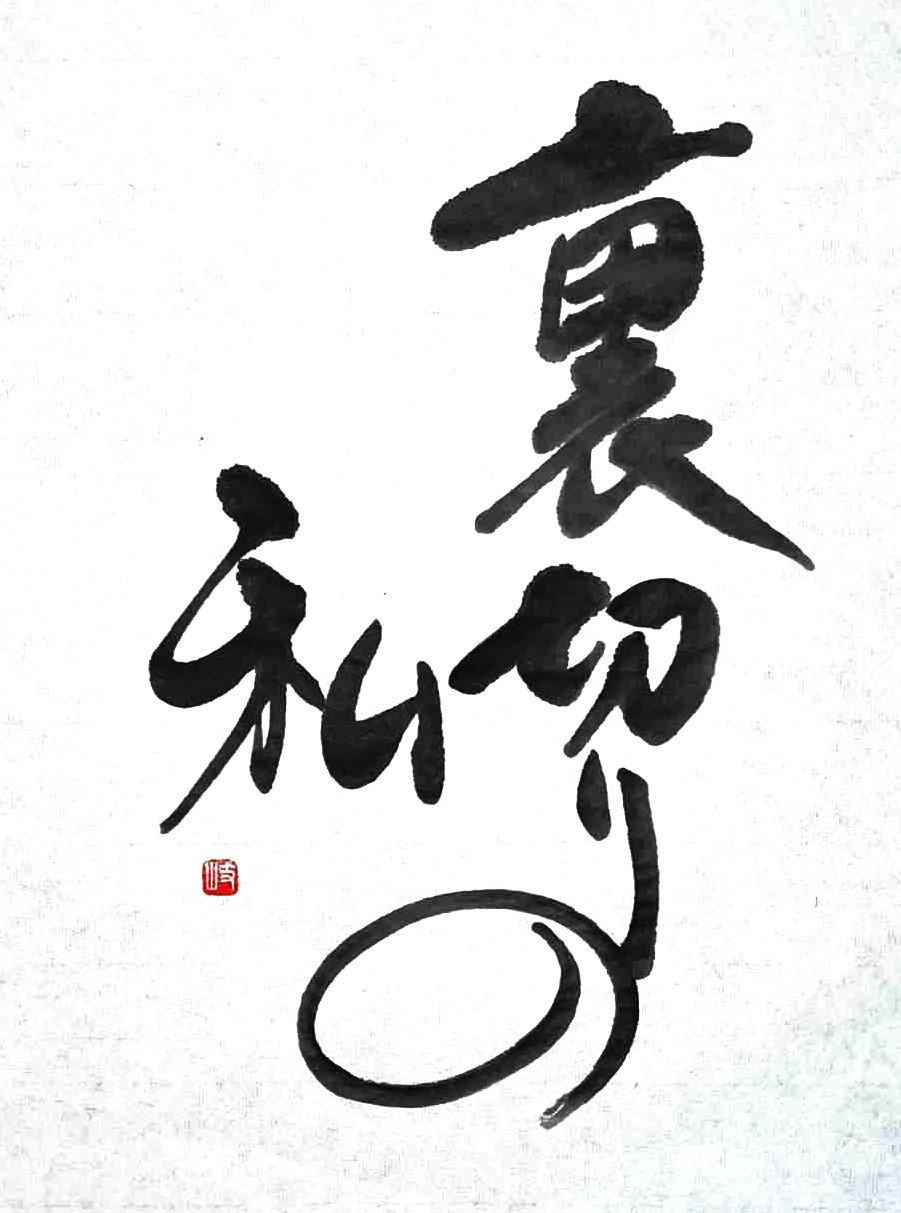 裏切りの
私
岐